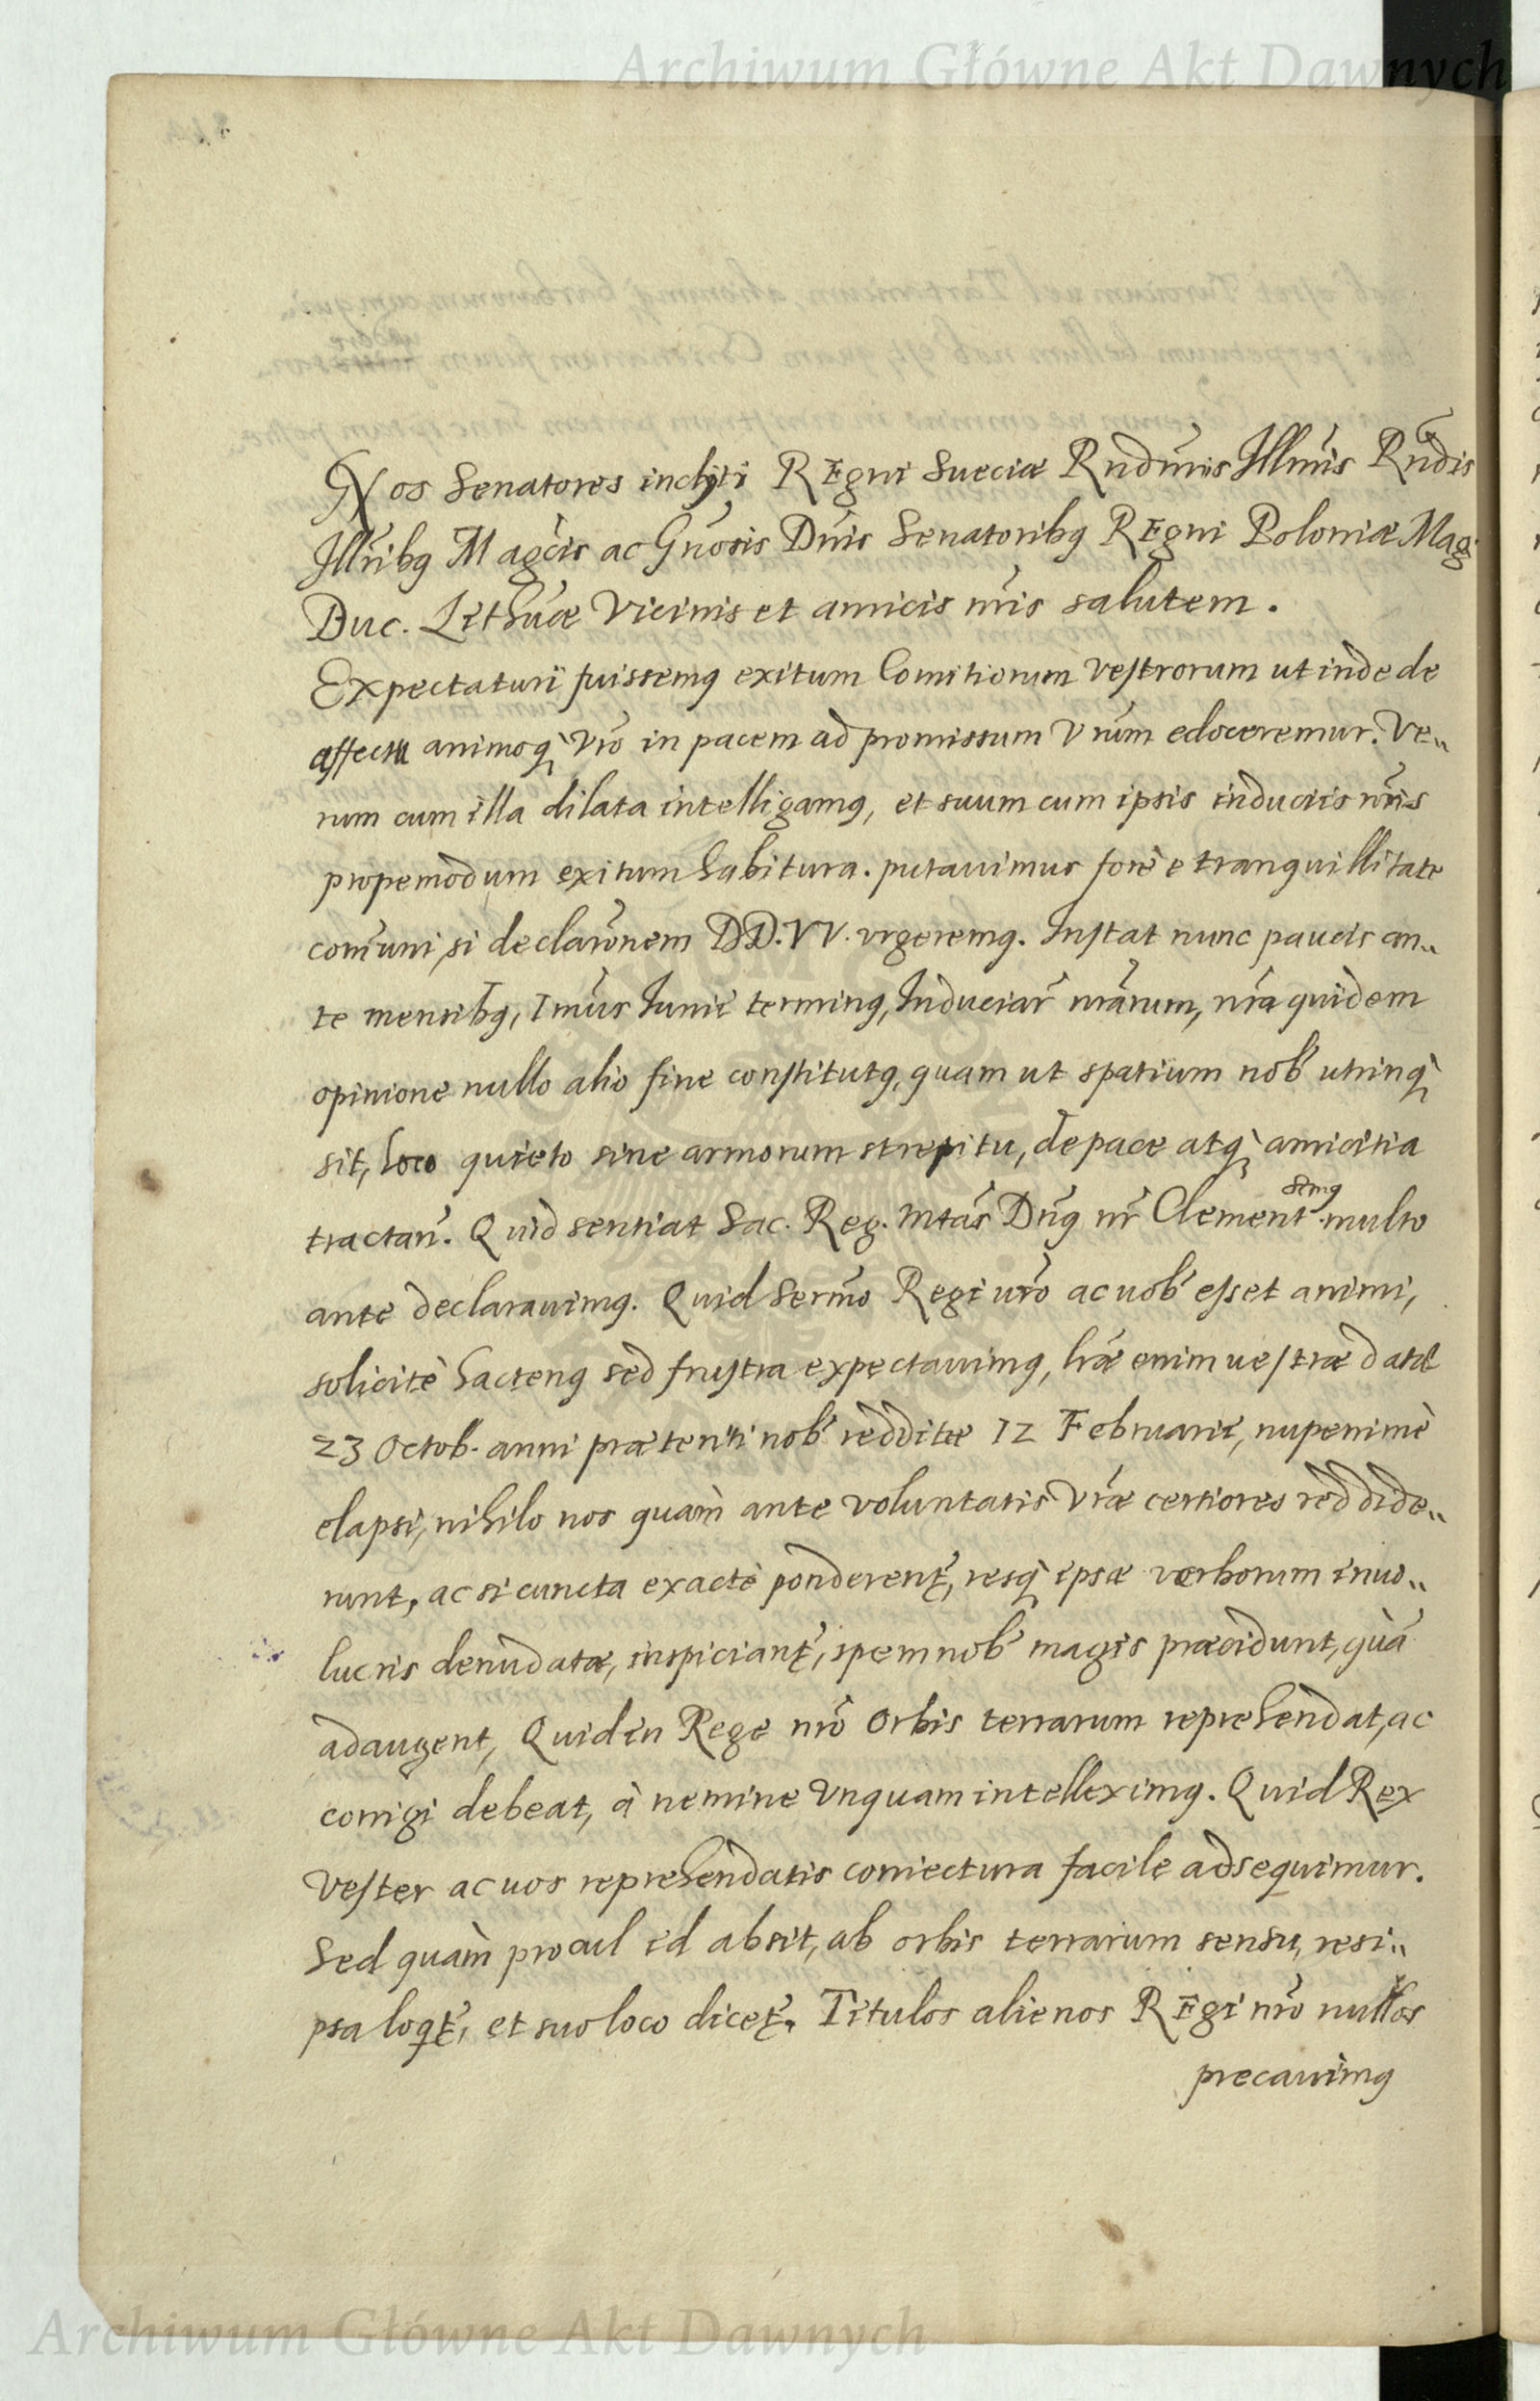 Archiwum Główne Akt Dawnych
Nos Senatores inclyti REgni Sueciæ Rndmis Illmis Rndis
Illribq Magcis ac Gnosis Dnis Senatoribq REgni Poloniæ Mag
Duc. Lithuæ Vicinis et amicis nris salutem.
Expectaturi fuissemq exitum Comitiorum Vestrorum ut inde de
affectu animoq Vro in pacem ad promissum Vnum edoceremur. Ve„
rum cum illa dilata intelligamq, et suum cum ipsis induciis nris
propemodum exitum habitura. putauimus fore è tranquillitate
comuni, si declaronem DD. VV. urgeremq. Instat nunc paucis an„
te mensibq, Imus Iunii terminq, Induciar nrarum, nra quidem
opinione nullo alio fine constitutq, quam ut spatium nob utrinq
sit, loco quieto sine armorum strepitu, de pace atq amicitia
tractan. Quid sentiat Sac. Reg. Mtas Dnq nr Clement simq multo
ante declarauimq. Quid Sermo Regi uro ac uob esset animi,
solicitè hactenq sed frustra expectauimq, lræ enim uestræ datæ
23 Octob. anni præteriti nob redditæ 12 Februarii, nuperimè
elapsi, nihilo nos quàm ante voluntatis Vræ certiores reddide„
runt, ac si cuncta exactè ponderent, resq ipsæ verborum inuo„
lucris denudatæ, inspiciant, spem nob magis præcidunt, quà
adaugent, Quid in Rege nro Orbis terrarum reprehendat, ac
corrigi debeat, à nemine Vnquam intelleximq. Quid Rex
Vester ac uos reprehendatis coniectura facile adsequimur.
Sed quàm procul id absit, ab orbis terrarum sensu, resi„
psa loqt, et suo loco dicet. Titulos alienos REgi nro nullos
precauimq
Archiwum Główne Akt Dawnych